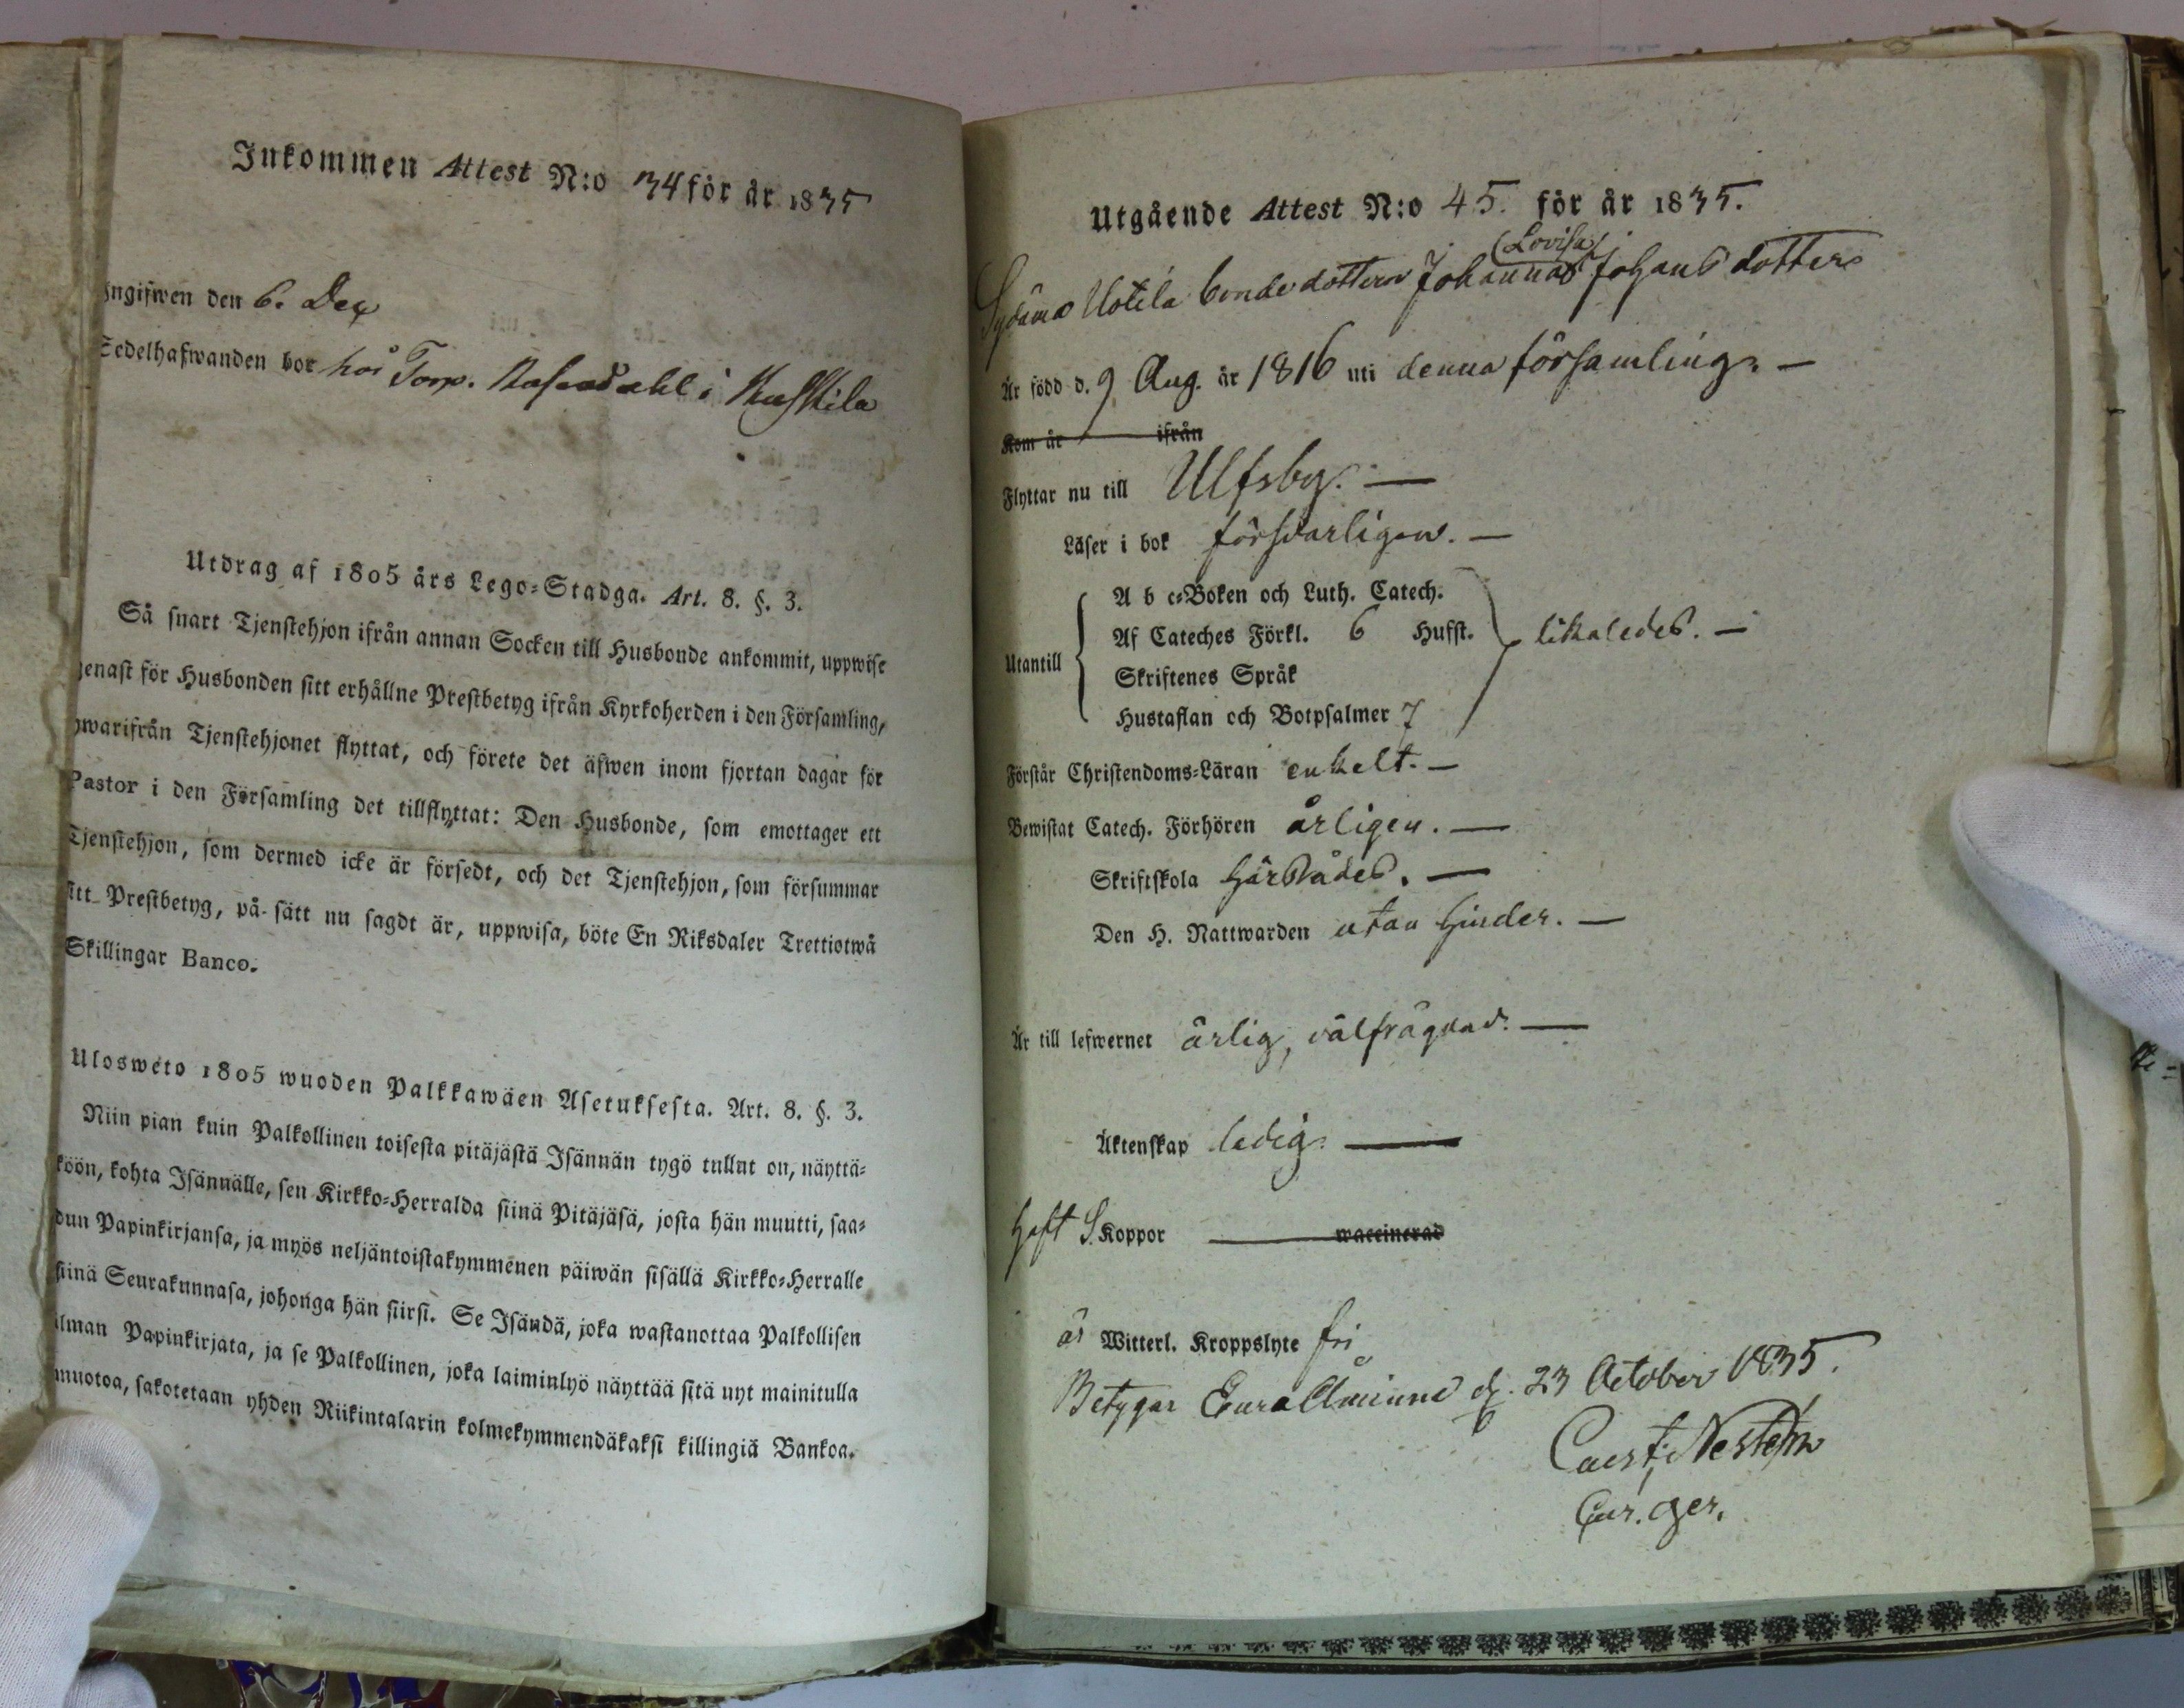 Inkommen Attest N:o 34 för år 1835
Ingifwen den 6. Dec
Sedelhafwanden bor hos Torp. Rosendahl i Kaskila
Utdrag af 1805 års Lego=Stadga. Art. 8. §. 3.
Så snart Tjenstehjon ifrån annan Socken till Husbonde ankommit, uppwise
genast för Husbonden sitt erhållne Prestbetyg ifrån Kyrkoherden i den Församling,
hwarifrån Tjenstehjonet flyttat, och förete det äfwen inom fjortan dagar för
Pastor i den Församling det tillflyttat: Den Husbonde, som emottager ett
Tjenstehjon, som dermed icke är försedt, och det Tjenstehjon, som försummar
sitt Prestbetyg, på sätt nu sagdt är, uppwisa, böte En Riksdaler Trettiotwå
Skillingar Banco.
Uloswéto 1805 wuoden Palkkawäen Asetuksesta. Art. 8. §. 3.
Niin pian kuin Palkollinen toisesta pitäjästä Isännän tygö tullut on, näyttä=
köön, kohta Isännälle, sen Kirkko=Herralda siinä Pitäjäsä, josta hän muutti, saa=
dun Papinkirjansa, ja myös neljäntoistakymmenen päiwän sisällä Kirkko=Herralle
siinä Seurakunnasa, johonga hän siirsi. Se Isändä, joka wastanottaa Palkollisen
ilman Papinkirjata, ja se Palkollinen, joka laiminlyö näyttää sitä nyt mainitulla
muotoa, sakotetaan yhden Riikintalarin kolmekymmendäkaksi killingiä Bankoa.
Utgående Attest N:o 45. för år 1835.
(Lovisa)
Sydänmaa Uotila bondedottern Johanna Johansdotter
Är född d. 9 Aug. år 1816 uti denna församling. —
Kom år ifrån
Flyttar nu till Ulfsby. —
Läser i bok försvarligen. —
A b c=Boken och Luth. Catech.
Af Cateches Förkl. 6 Hufst. likaledes. —
Utantill
Skriftenes Språk
Hustaflan och Botpsalmer 7
Förstår Christendoms=Läran enkelt. —
Bewistat Catech. Förhören årligen. —
Skriftskola härstädes. —
Den H. Nattwarden utan hinder. —
Är till lefwernet ärlig, välfrägdad. —
Äktenskap ledig. —
Haft S. Koppor waccinerad
är Witterl. Kroppslyte fri
Betygar Euraåminne d. 23 October 1835.